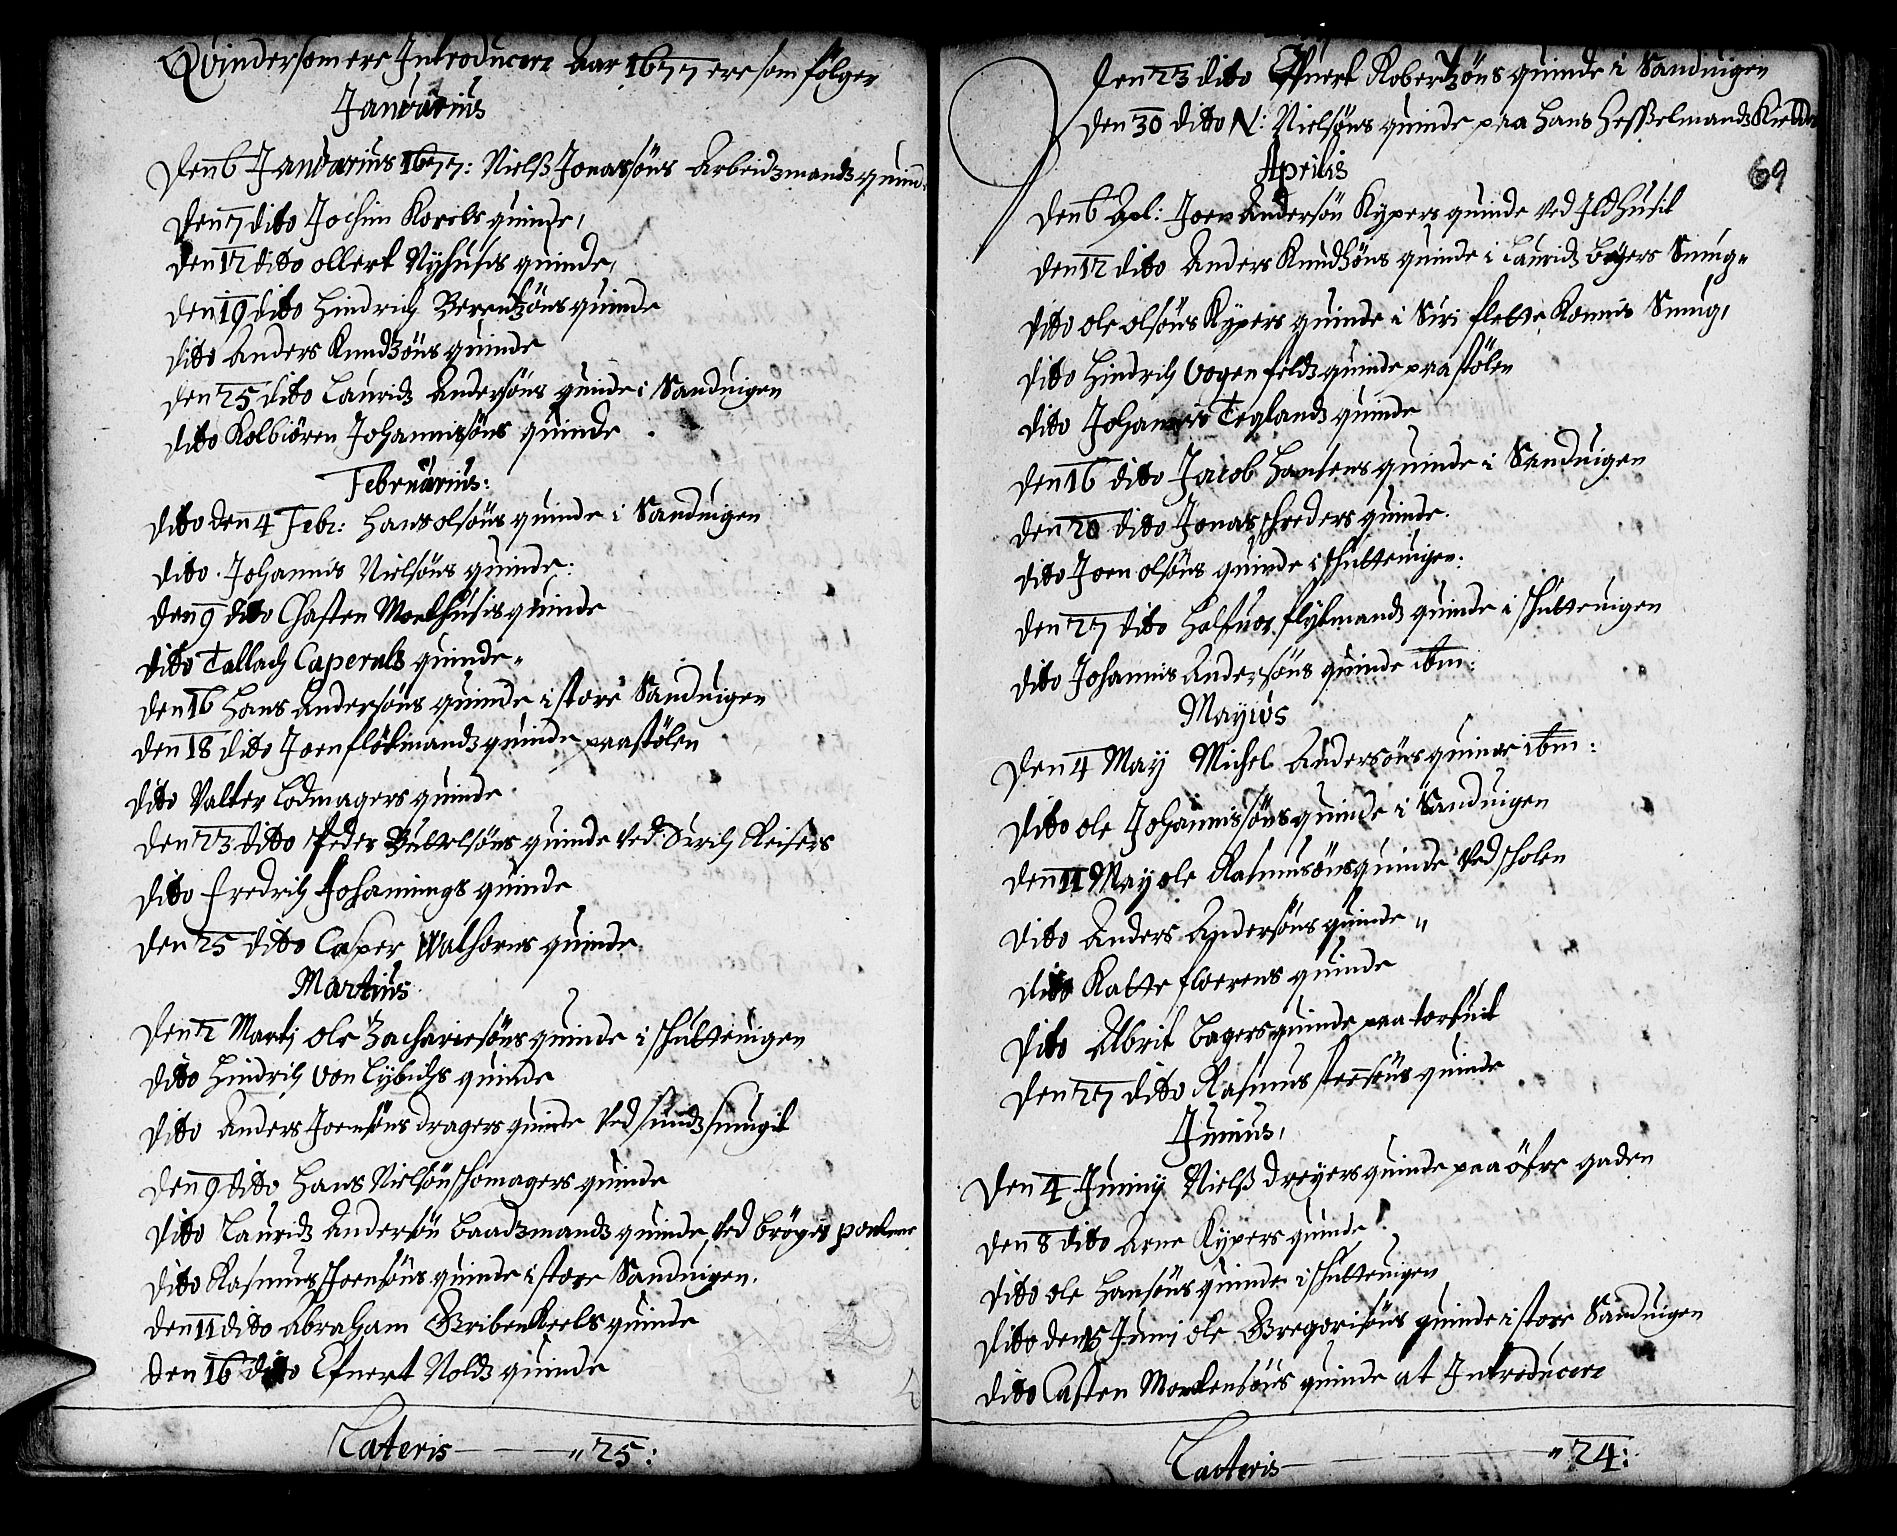 Qvinder som ere Introducere Aar 1677 ere som fölger
Januarius
Den 6 Januarius 1677: Nielß Jonassöns Arbeidzmandz quind
Den 7 dito Jochim Korels quinde,
Den 12 dito ollert Nyhusis quinde,
Den 19 dito Hindrich Berentzöns quinde
Dito Anders Knudzöns quinde
Den 25 dito Lauridz Andersöns quinde i Sanduigen
Dito Kolbiören Johannissöns quinde
Februarius:
Dito den 4 Febr: Hans olsöns quinde i Sanduigen
Dito Johannis Nielsöns quinde:
Den 9 dito Chasten Morlhusis quinde
Dito Tallach Caperals quinde
Den 16 Hans Andersöns quinde i store Sanduigen
Den 18 dito Joen flötmandz quinde paa stölen
Dito Valter Lodmagers quinde
Den 23 dito Peder quinde Ved Dirich Reisers
Dito fredrich Johannings quinde
Den 25 dito Casper Walhorns quinde
Martius
Den 2 Martj Ole Zachariesöns quinde i schutteuigen
Dito Hindrich Von Lybichs quinde
Dito Anders Joensöns dragers quinde Ved sundz smugit
Den 9 dito Hans Nielsön schomagers quinde
Dito Lauridz Andersön baadzmandz quinde, Ved brögis
Dito Rasmus Joensöns quinde i store Sanduigen.
Den 11 dito Abraham Gribenkeels quinde
Den 16 dito Efuert Noldz quinde
Lateris " 25:
Den 23 dito Effuert Robertzöns quinde i Sanduigen
Den 30 dito N: Nielsöns quinde paa Hans Heßelmandz
69
Aprilis
Den 6 Apl: Joen Andersön Kypers quinde Ved Ildhusit
Den 12 dito Anders Knudzöns quinde i Lauridz bøyers Smug
Dito ole olsöns Kypers quinde i Siri flette Konnis Smug,
Dito Hindrich Vogenfeldz quinde paa stölen
Dito Johannis Teglandz quinde
Den 16 dito Jacob Hansens quinde i Sanduigen
Den 20 dito Jonas schreders quinde.
Dito Joen olsöns quinde i schutteuigen.
Den 27 dito Halfuor flytmandz quinde i schutteuigen
Dito Johannis Andersöns quinde ibm:
Mayius
Den 4 May Michel Andersöns quinde ibm:
Dito ole Johannissöns quinde i Sanduigen
Den 11 May ole Rasmusöns quinde Ved scholen
Dito Anders Andersöns quinde "
Dito Katte floerens quinde
Dito Albrit bagers quinde paa torfuit
Den 27 dito Rasmus stensöns quinde
Junius,
Den 4 Juniy Nielß dreyers quinde paa öfre gaden
Den 8 dito Arne Kypers quinde
Dito ole Hansöns quinde i schutteuigen
Dito den 15 Junj ole Gregorisöns quinde i store Sanduigen
Dito Casten Mortensöns quinde at Introducere
Lateris " 24: